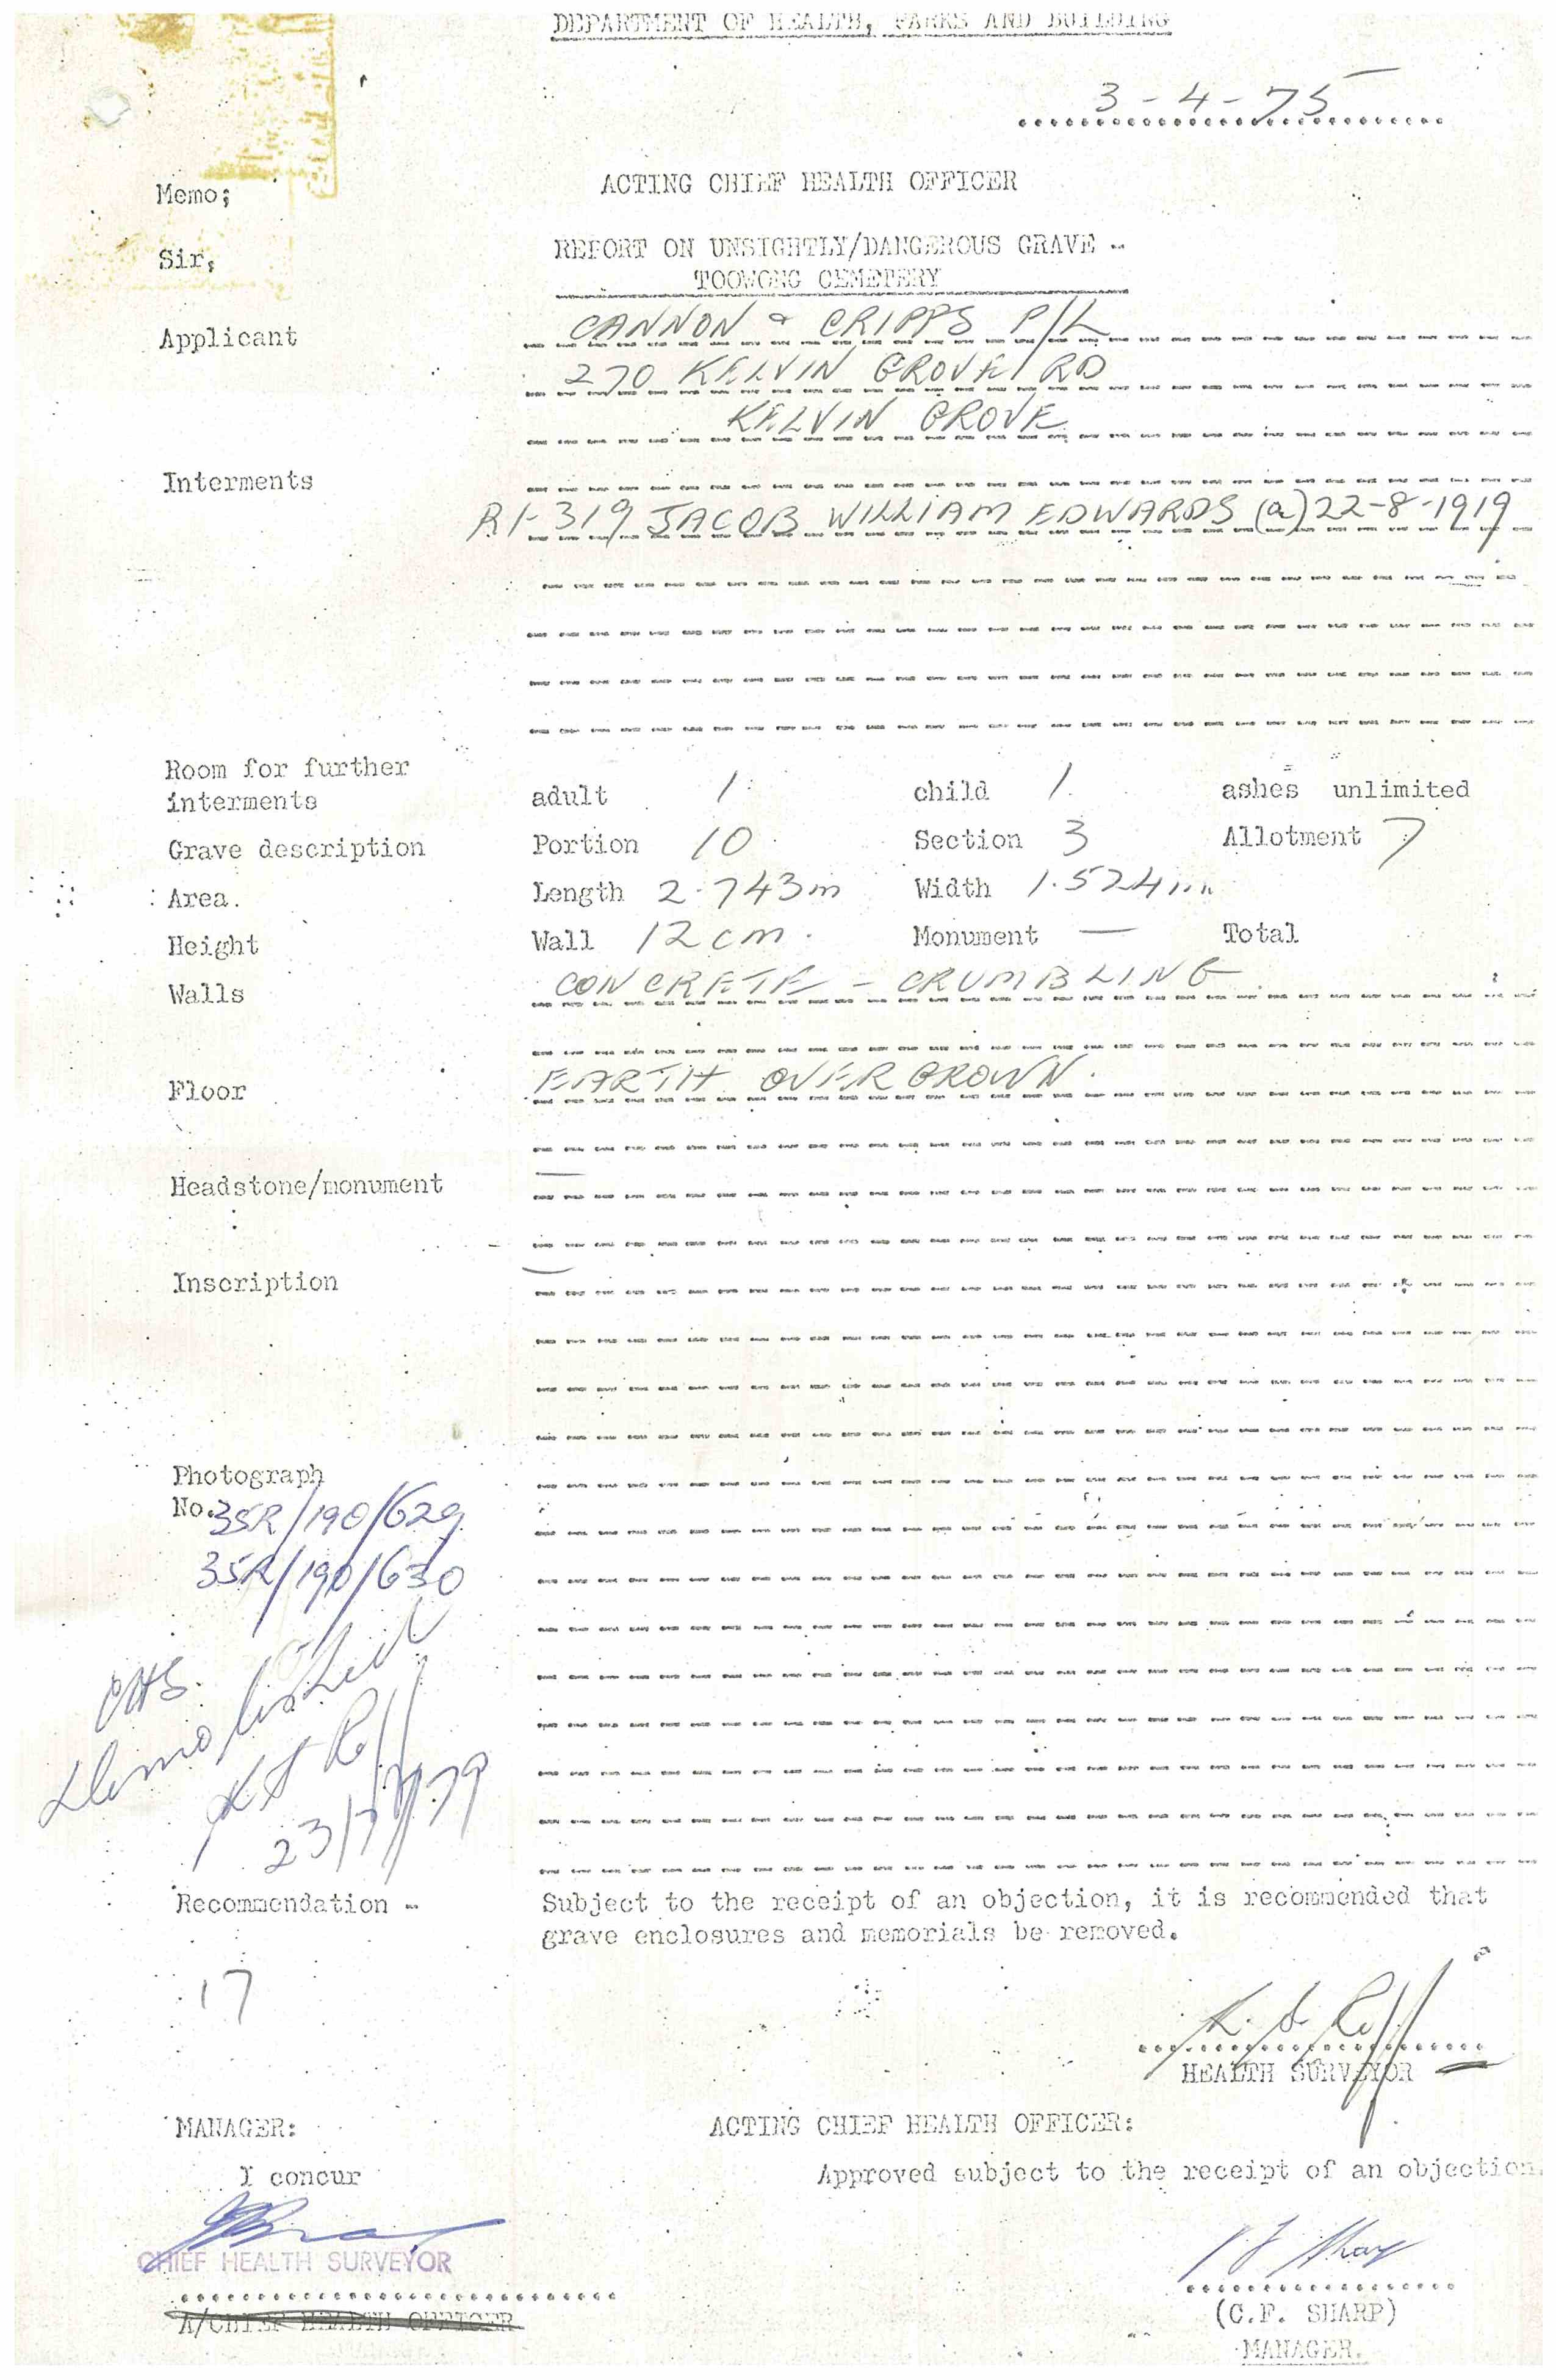 DEPARTMENT OF HEALTH, PARKS AND BUILDING
3-4-75
Memo; ACTING CHIEF HEALTH OFFICER
Sir, REPORT ON UNSIGHTLY/DANGEROUS GRAVE -
TOOWONG CEMETERY
Applicant CANNON & CRIPPS P/L
270 KELVIN GROVE RD
KELVIN GROVE
Interments
R1-319 JACOB WILLIAM EDWARDS (a) 22-8-1919
Room for further
interments adult 1 child 1 ashes unlimited
Grave description Portion 10 Section 3 Allotment 7
Area. Length 2.743m Width 1.524m
Height Wall 12cm. Monument — Total
Walls CONCRETE - CRUMBLING
Floor EARTH OVERGROWN.
Headstone/monument —
Inscription —
Photograph
No. 35R/190/629
35R/190/630
CHS.
Demolished
23/11/79
Recommendation - Subject to the receipt of an objection, it is recommended that
grave enclosures and memorials be removed.
17
HEALTH SURVEYOR
MANAGER: ACTING CHIEF HEALTH OFFICER:
I concur Approved subject to the receipt of an objection.
CHIEF HEALTH SURVEYOR
A/CHIEF HEALTH OFFICER
(C.F. SHARP)
MANAGER.